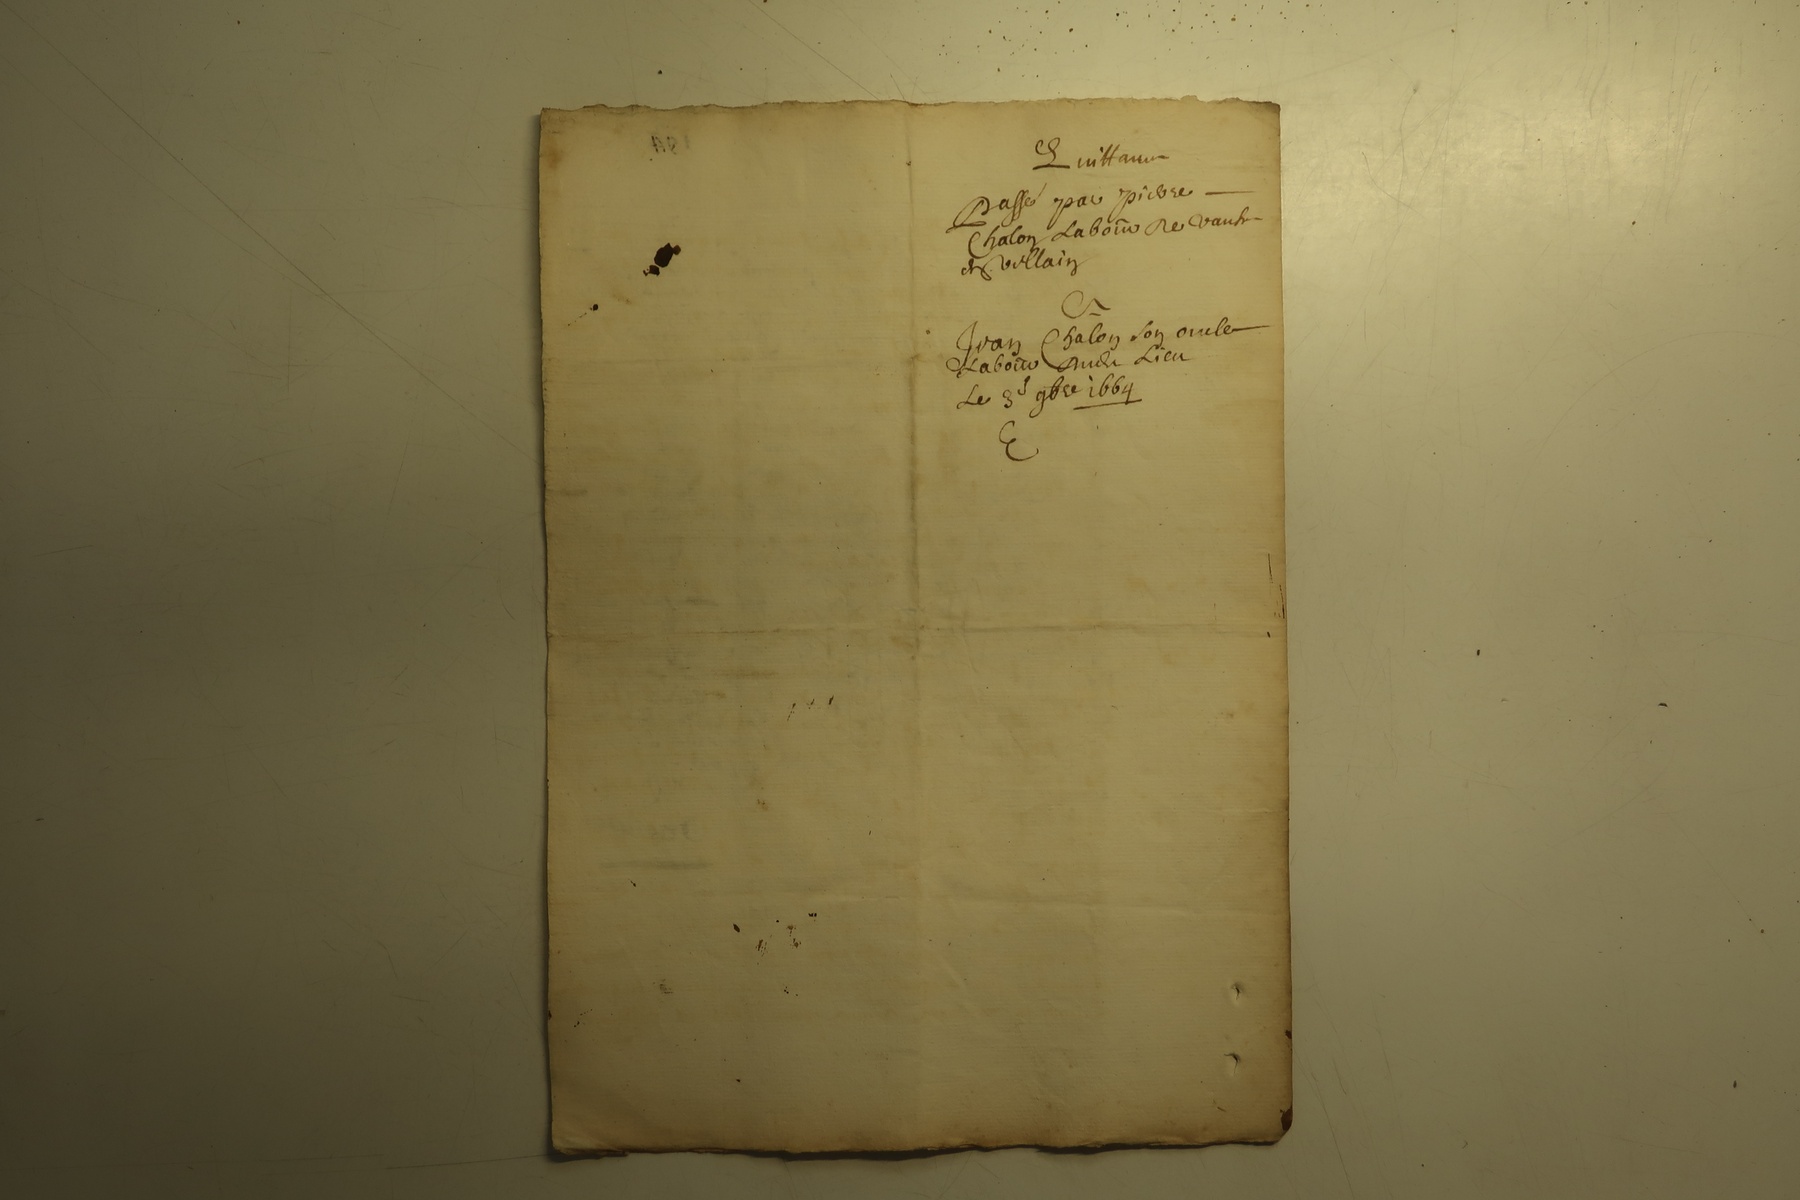 Quittance
Passé par pierre
Chalon Labour de
de vellain
A
Jean Chalon son oncle
Labour Audit Lieu
Le 3e 9bre 1664